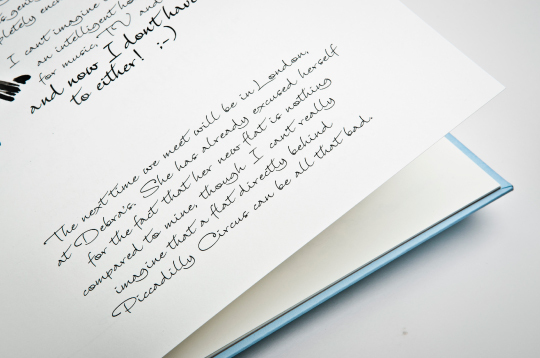 I cant imagine
an intelligent
for music, TV and
and now I dont have
to either! :-)
The next time we meet will be in London,
at Debra's. She has already excused herself
for the fact that her new flat is nothing
compared to mine, though I cant really
imagine that a flat directly behind
Piccadilly Circus can be all that bad.